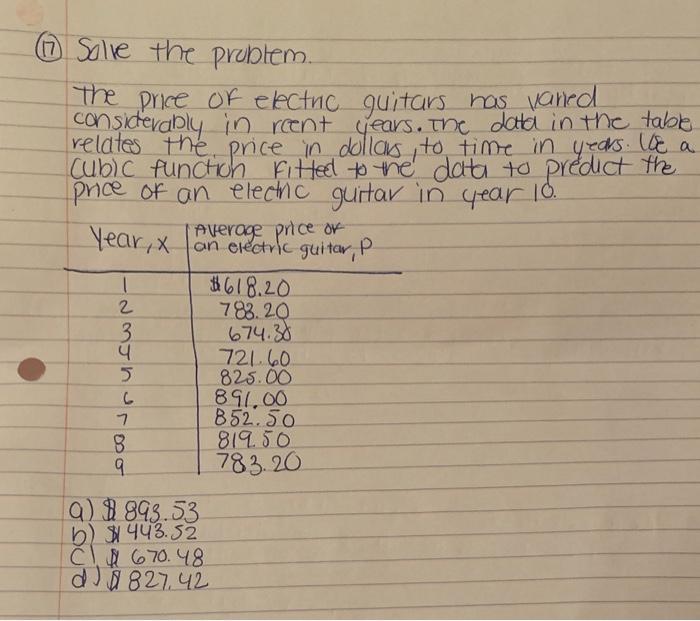 17 Solve the problem.
The price of electric guitars has varied
considerably in recent years. The data in the table
relates the price in dollars, to time in years. Use a
cubic function fitted to the data to predict the
price of an electric guitar in year 10.
Year, x Average price of
an electric guitar, P
1 $618.20
2 783.20
3 674.30
4 721.60
5 825.00
6 891.00
7 852.50
8 819.50
9 783.20
a) $893.53
b) $443.52
c) $670.48
d) $827.42